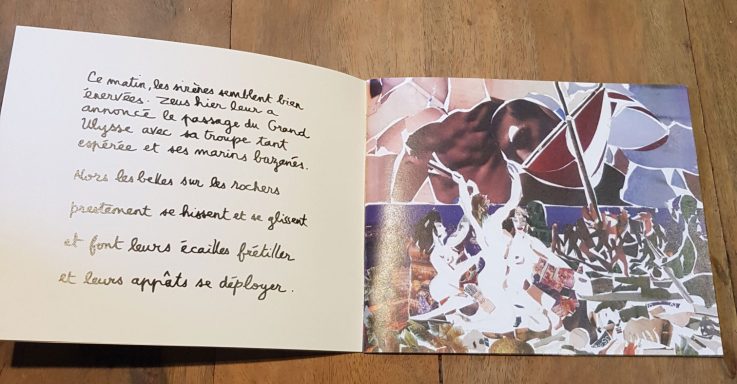 Ce matin, les sirènes semblent bien
énervées. Zeus hier leur a
annoncé le passage du Grand
Ulysse avec sa troupe tant
espérée et ses marins bazanés.
Alors les belles sur les rochers
prestement se hissent et se glissent
et font leurs écailles frétiller
et leurs appâts se déployer.